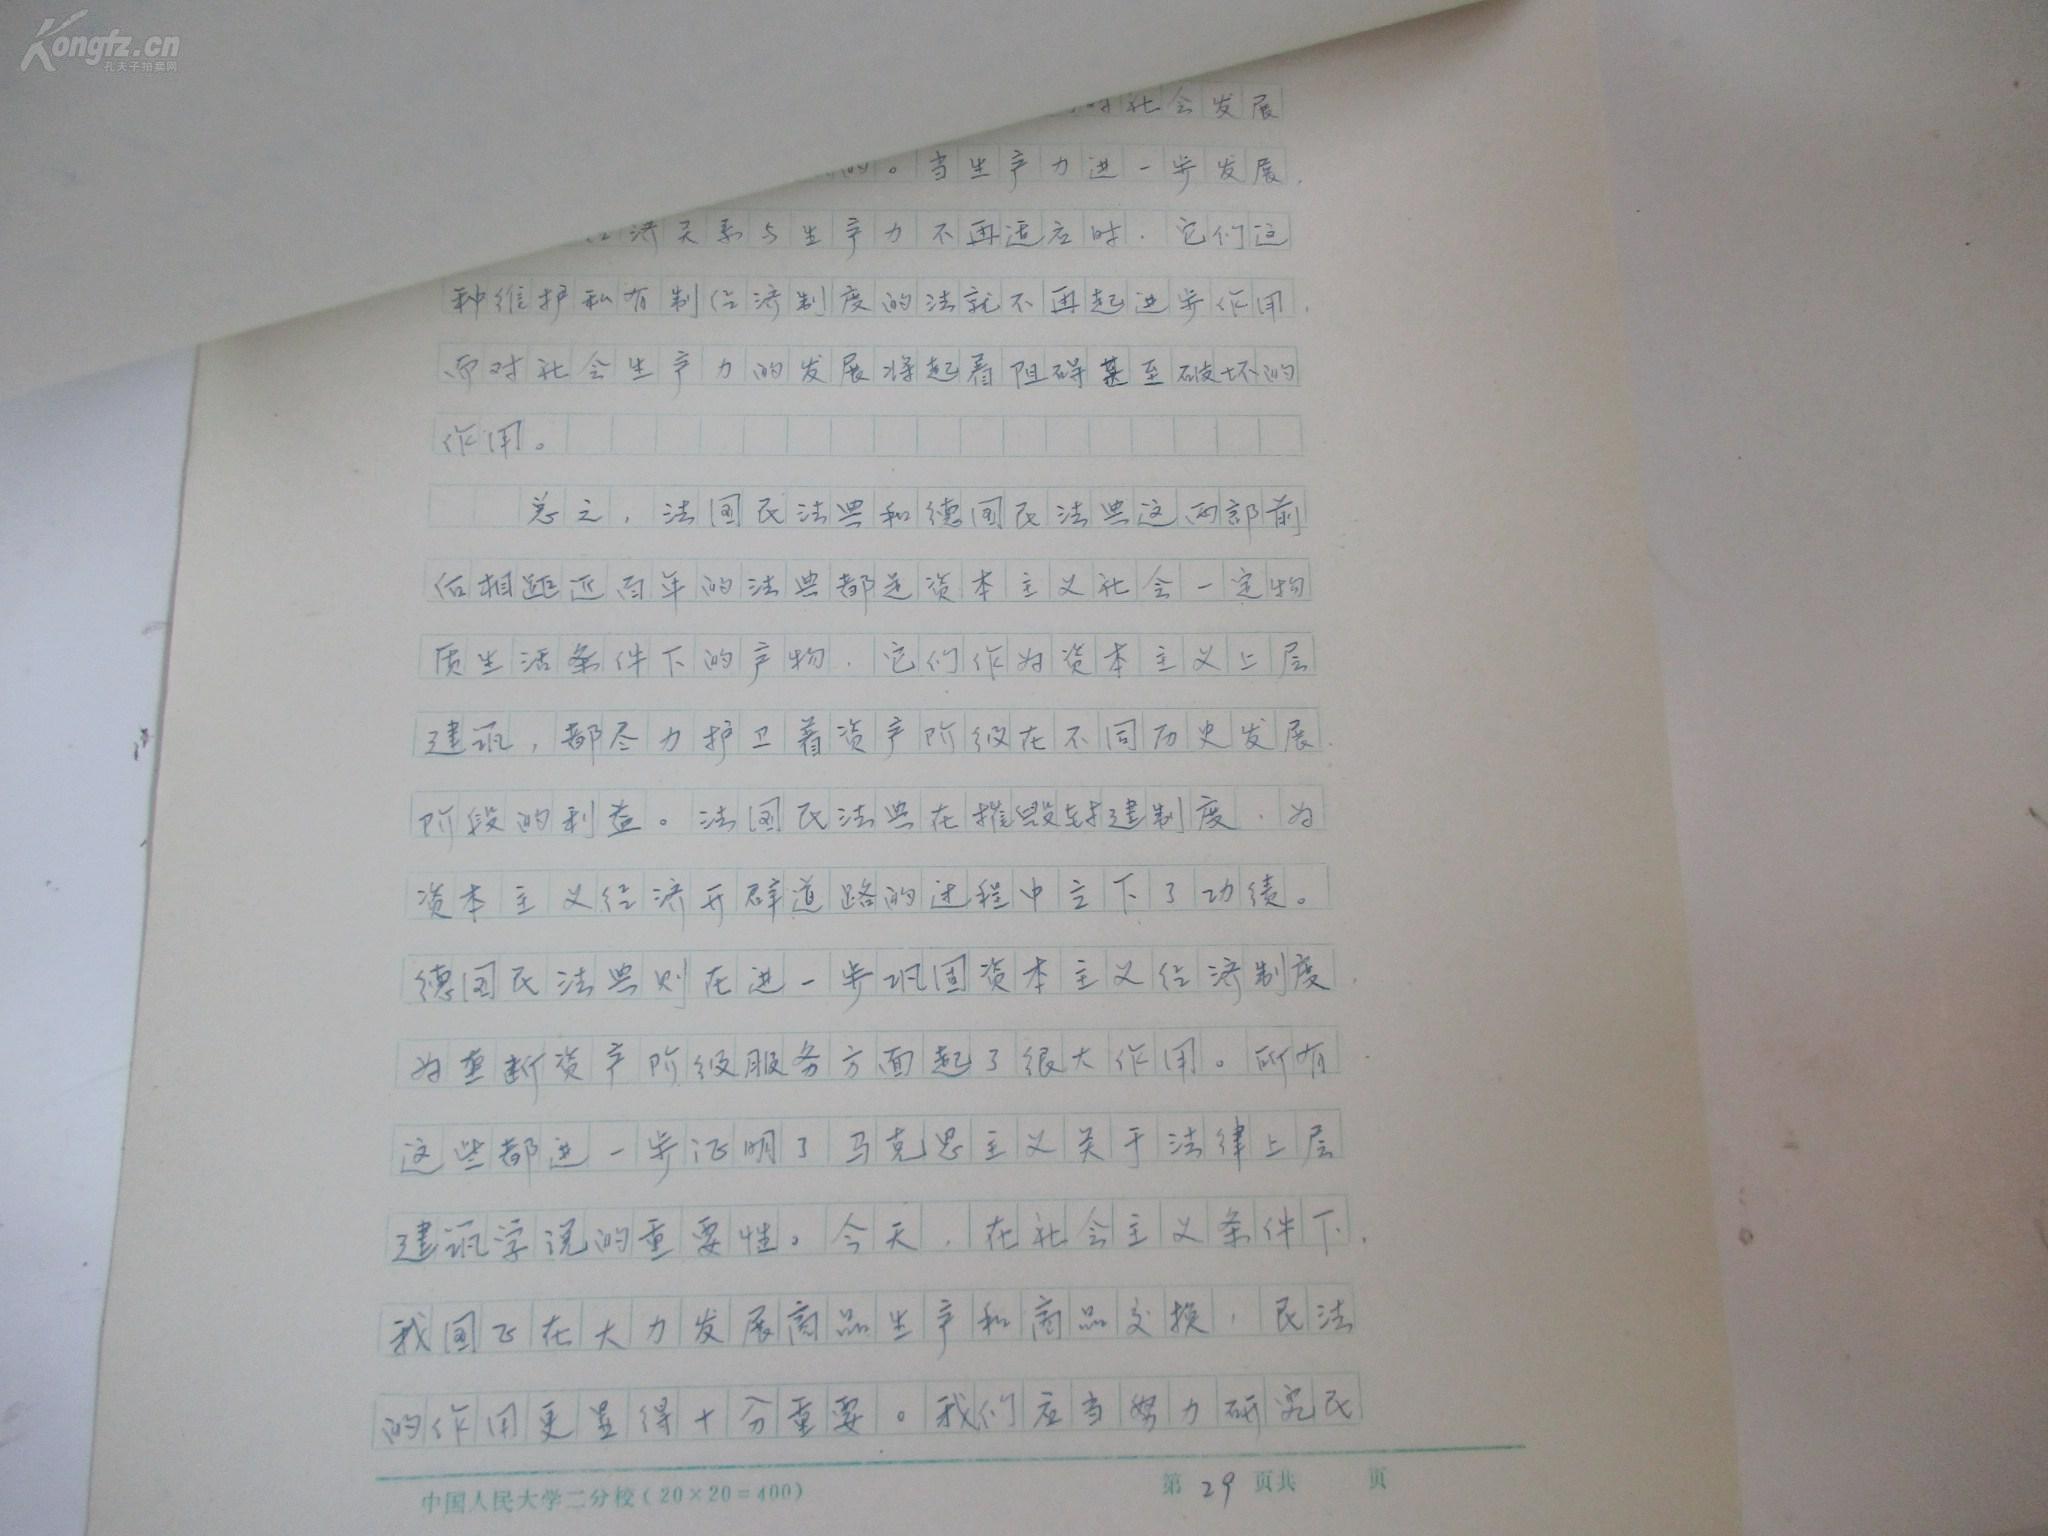 Kongfz.cn
孔夫子拍卖网
时社会发展
的。当生产力进一步发展，
济关系与生产力不再适应时，它们这
种维护私有制经济制度的法就不再起进步作用，
而对社会生产力的发展将起着阻碍甚至破坏的
作用。
总之，法国民法典和德国民法典这两部前
后相距近百年的法典都是资本主义社会一定物
质生活条件下的产物，它们作为资本主义上层
建筑，都尽力护卫着资产阶级在不同历史发展
阶段的利益。法国民法典在摧毁封建制度，为
资本主义经济开辟道路的进程中立下了功绩。
德国民法典则在进一步巩固资本主义经济制度，
为垄断资产阶级服务方面起了很大作用。所有
这些都进一步证明了马克思主义关于法律上层
建筑学说的重要性。今天，在社会主义条件下，
我国正在大力发展商品生产和商品交换，民法
的作用更显得十分重要。我们应当努力研究民
中国人民大学二分校（20×20=400）
第 29 页共 页